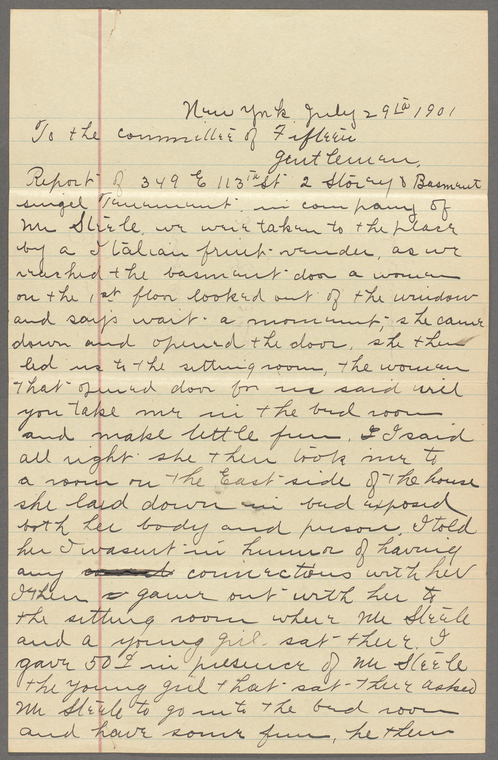 New York July 29th 1901
To the committee of Fifteen
Gentlemen,
Report of 349 E 113th St 2 Storey & Basment
singel Tenament in company of
Mr Steele, we weir taken to the place
by a Italian fruit vender, as we
reached the basment door a woman
on the 1st floor looked out of the window
and says wait a momunt, she came
down and opened the door, she then
led us to the sitting room, the woman
that opened door for us said will
you take me in the bed room
and make little fun. I said
all right she then took me to
a room on the East side of the house
she laid down in bed exposed
both her body and person, I told
her I wasent in humor of having
any connections with her
I then came out with her to
the sitting room wheir Mr Steele
and a young girl sat theer. I
gave 50¢ in presence of Mr Steele
the young girl that sat theer asked
Mr Steele to go into the bed room
and have some fun, he then